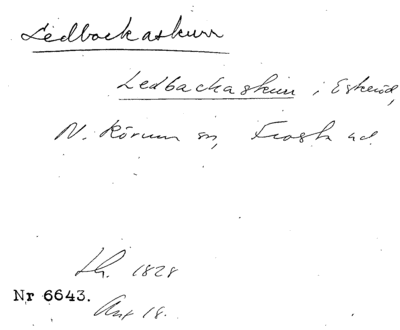 Ledbackaskurr
Ledbackaskurr i Eskeröd,
N. Rörum sn, Frosta hd.
Lh. 1828
Nr 6643.
Akt 18.